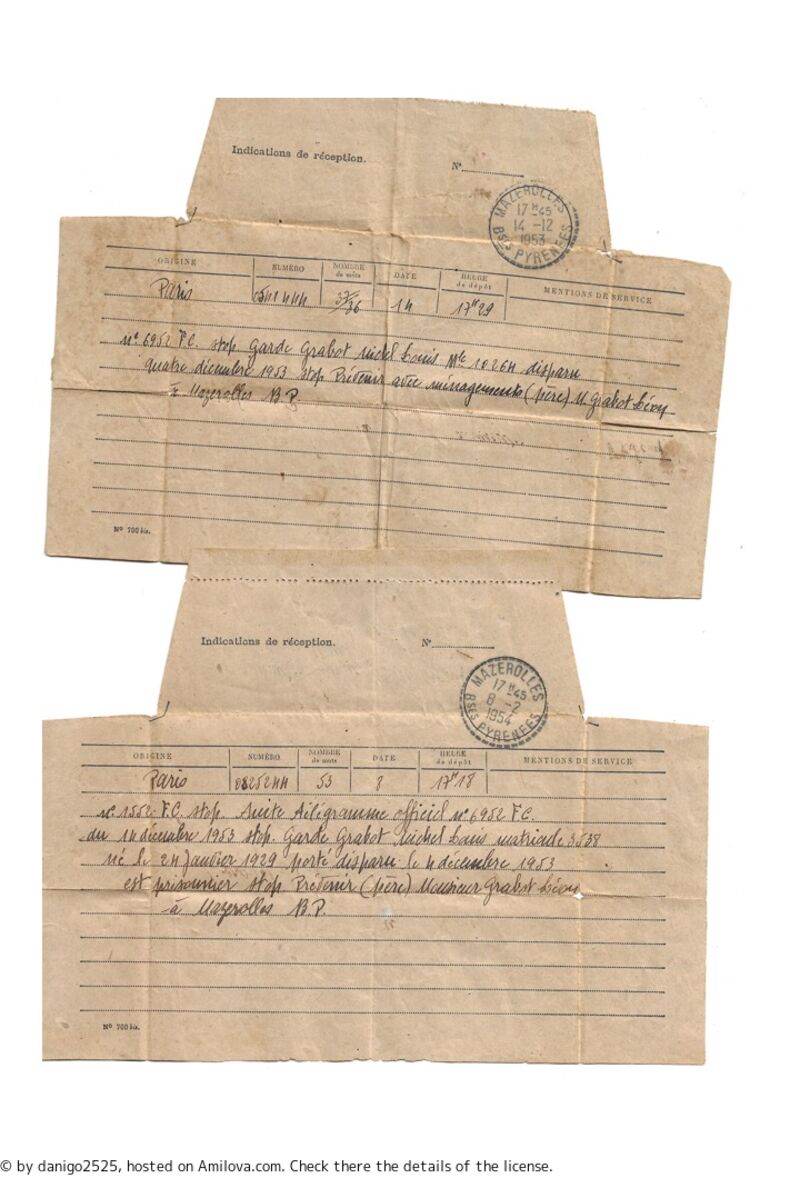 Indications de réception.
N°
MAZEROLLES
17 H 45
14 -12
1953
Bses PYRENEES
ORIGINE NUMÉRO NOMBRE de mots DATE HEURE de dépôt MENTIONS DE SERVICE
Paris 37/36 14 17H29
n° 6952 F.C. stop Garde Grabot Michel Louis Mle 10264 disparu
quatre décembre 1953 stop Prévenir avec ménagements (père) M. Grabot Léon
à Mazerolles B.P.
N° 700 bis.
Indications de réception.
N°
MAZEROLLES
17 H 45
8 -2
1954
Bses PYRENEES
ORIGINE NUMÉRO NOMBRE de mots DATE HEURE de dépôt MENTIONS DE SERVICE
Paris 08252 44 53 8 17H18
n° 1552 F.C. stop. Suite télégramme officiel n° 6952 F.C.
du 14 décembre 1953 stop. Garde Grabot Michel Louis matricule 3538
né le 24 Janvier 1929 porté disparu le 4 décembre 1953
est prisonnier stop Prévenir (père) Monsieur Grabot Léon
à Mazerolles B.P.
N° 700 bis.
© by danigo2525, hosted on Amilova.com. Check there the details of the license.